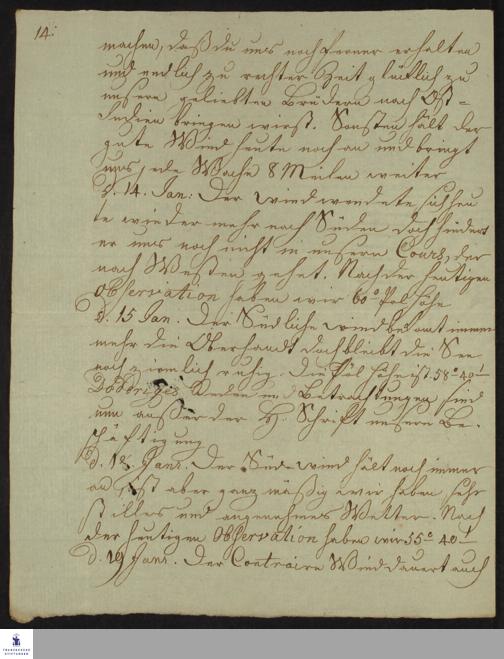 14.
machen, daß du uns noch ferner erhalten
und endlich zu rechter Zeit glücklich zu
unsern geliebten Brüdern nach Ost-
Indien bringen wirst. Sonsten hält der
gute Wind heute noch an und bringt
uns jede Wache 8 Meilen weiter
d. 14. Jan: Der Wind wendete sich heu
te wieder mehr nach Süden doch hindert
er uns noch nicht in unserm Cours, der
nach Westen gehet. Nach der heutigen
Observation haben wir 60° Pol Höhe
d. 15 Jan. Der Südliche Wind bekomt immer
mehr die Oberhandt doch bleibt die See
noch ziemlich ruhig. Die Pol Höhe ist 58° 40'
Reden und Betrachtungen sind
nun außer der H. Schrift unsere Be-
schäftigung
d. 18 Janr. Der Süd-wind hält noch immer
an, ist aber ganz mäßig wir haben sehr
stilles und angenehmes Wetter. Nach
der heutigen Observation haben wir 55° 40'
d. 19 Janr. Der Contraire Wind dauert auch
FRANCKESCHE
STIFTUNGEN